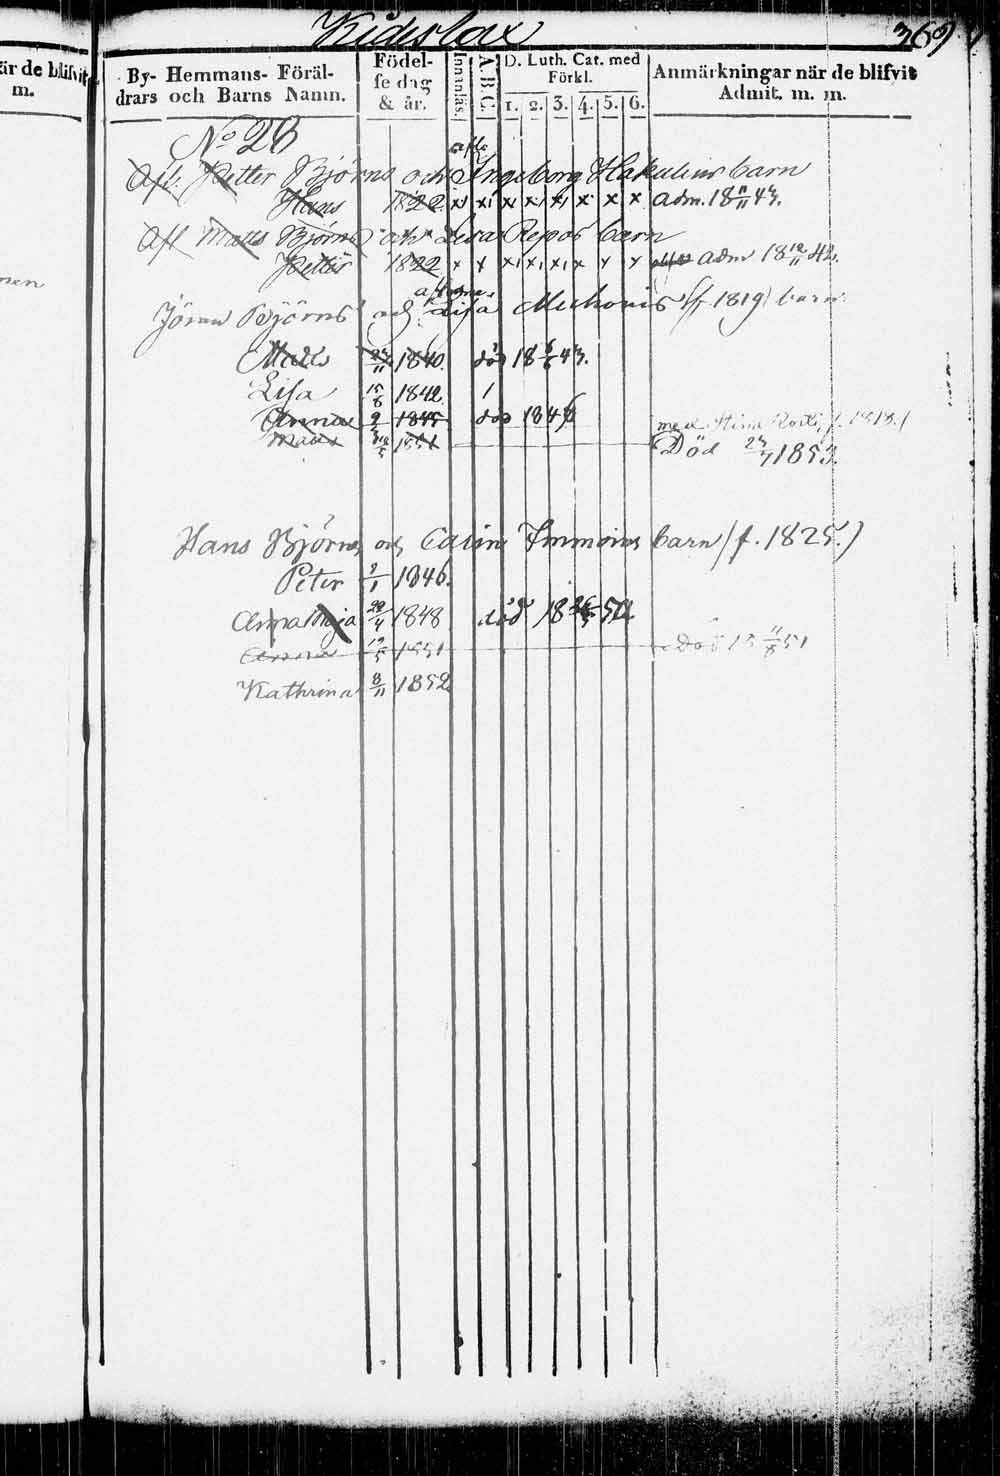 är de blifvit
m.
369
By- Hemmans- Föräl-
drars och Barns Namn.
Födel-
se dag
& år.
Innanläs.
A.B.C.
D. Luth. Cat. med
Förkl.
1. 2. 3. 4. 5. 6.
Anmärkningar när de blifvit
Admit. m. m.
No 28
Afl. Petter Björns och Afl. Ingeborg Hakulins barn
Hans 1822 x x x x x x x x adm. 18 11/11 43.
Afl Matts Björns och Lisa Repos barn
Petter 1822 x x x x x x x x adm 18 12/11 42.
Jöran Björns och Lisa (f 1819) barn
Matts 27/11 1840. död 18 6/6 43.
Lisa 15/8 1842. 1
Anna 1845 död 1846
med Stina f. 1818.
Matts 1851 Död 27/7 1853.
Hans Björns och Carin Immoins barn (f. 1825.)
Peter 3/1 1846.
Anna Maja 22/4 1848 död 18 50
Anna 19/5 1851 Död 51
Kathrina 8/11 1852